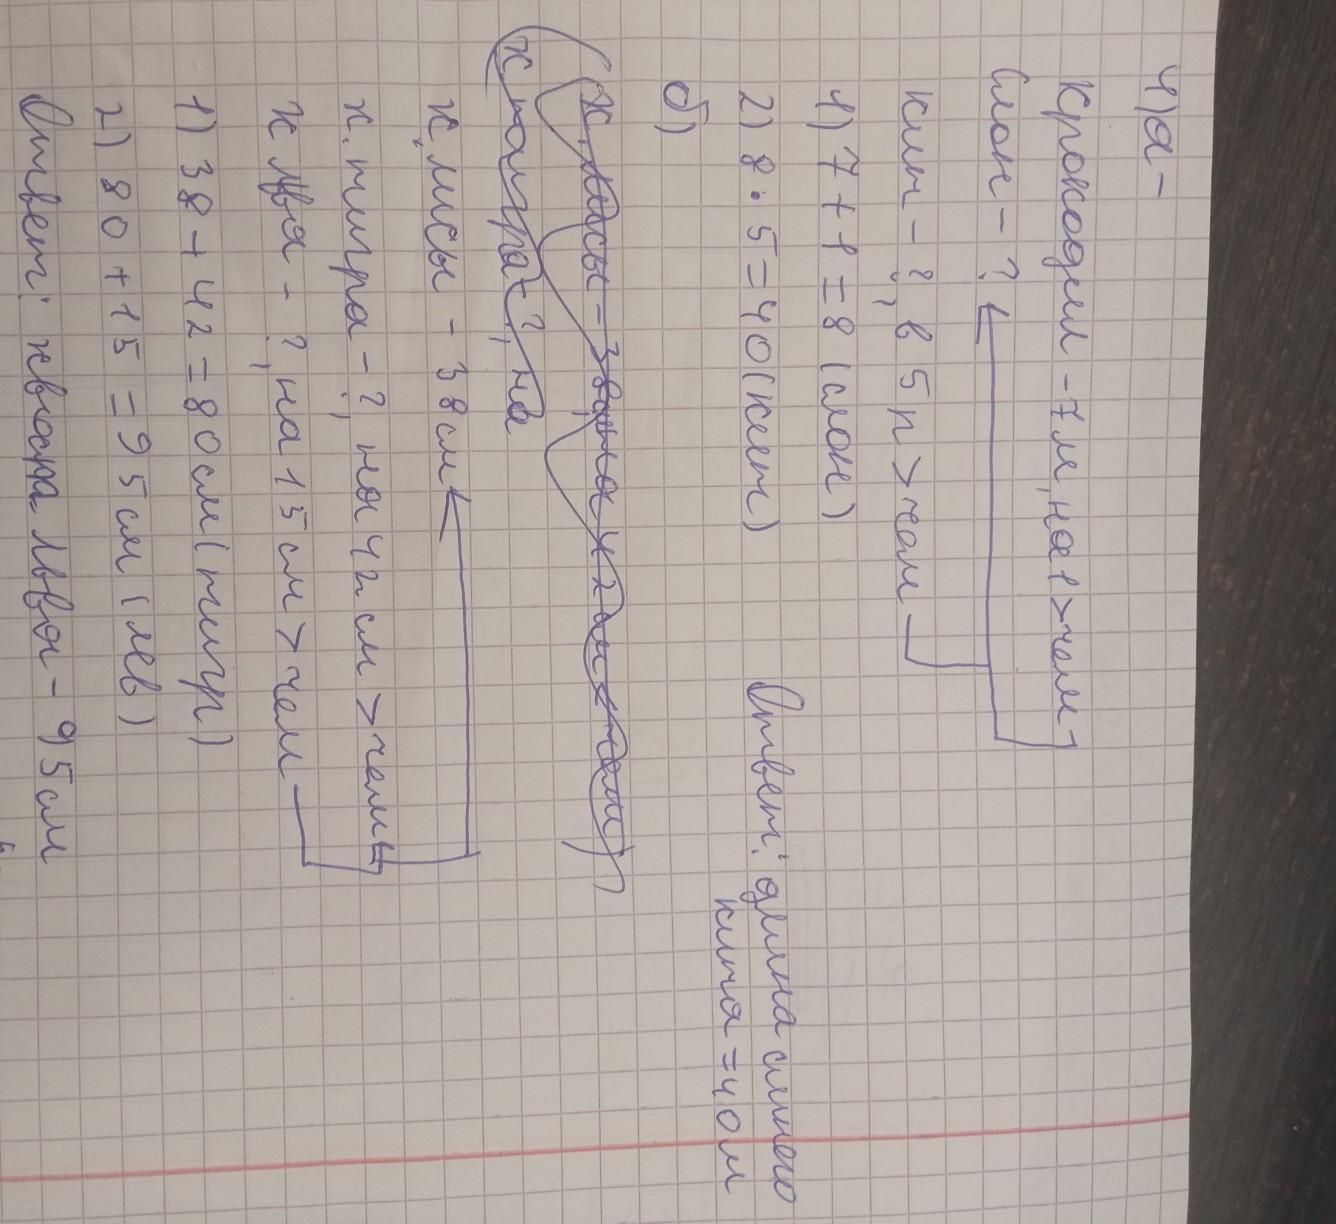 4) а -
Крокодил - 7 м, на 1 > чем
Слон - ?
Кит - ?, в 5 р > чем
1) 7 + 1 = 8 (слон)
2) 8 · 5 = 40 (кит)
Ответ: длина синего
кита = 40 м
б)
х. лисы - 38 см
х. тигра - ?, на 42 см > чем
х льва - ?, на 15 см > чем
1) 38 + 42 = 80 см (тигр)
2) 80 + 15 = 95 см (лев)
Ответ: хвоста льва - 95 см